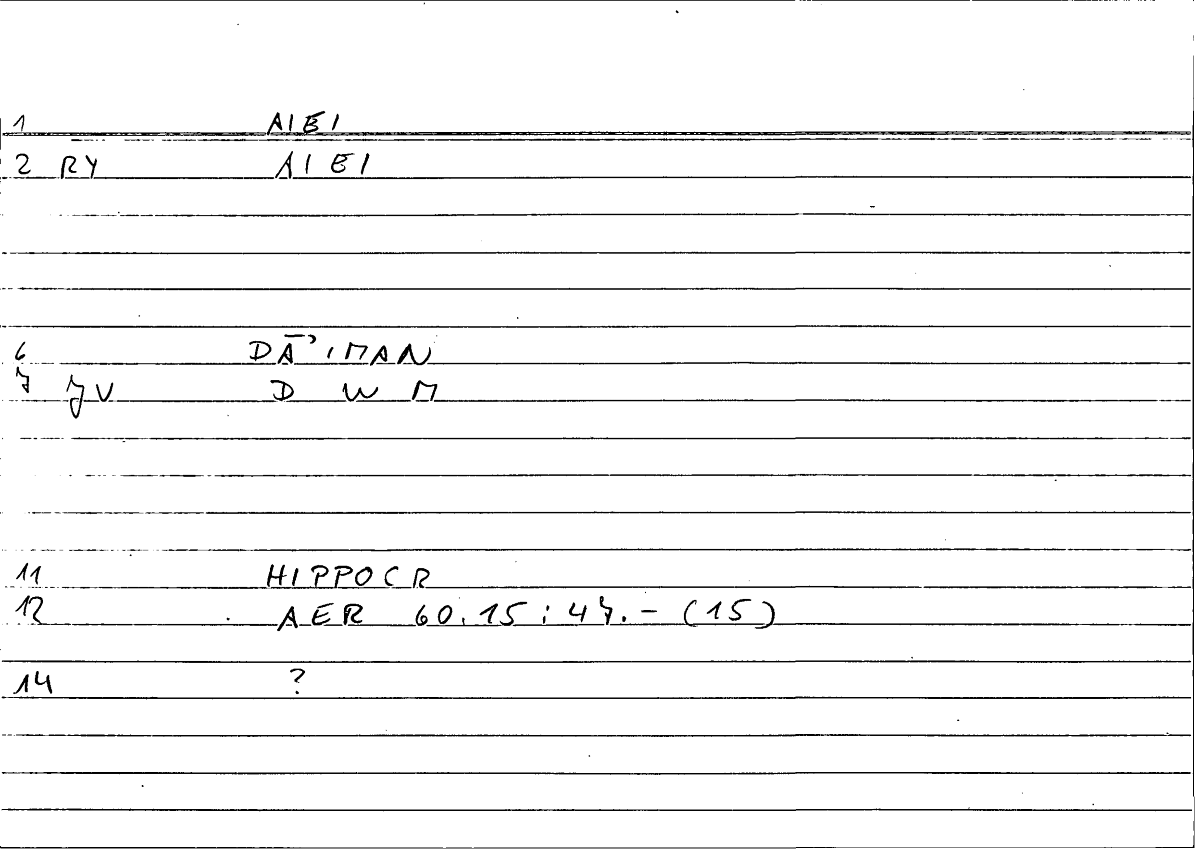 1 AIEI
2 RY AIEI
6 DĀʾIMAN
7 JV D W M
11 HIPPOCR
12 AER 60.15 : 47.- (15)
14 ?